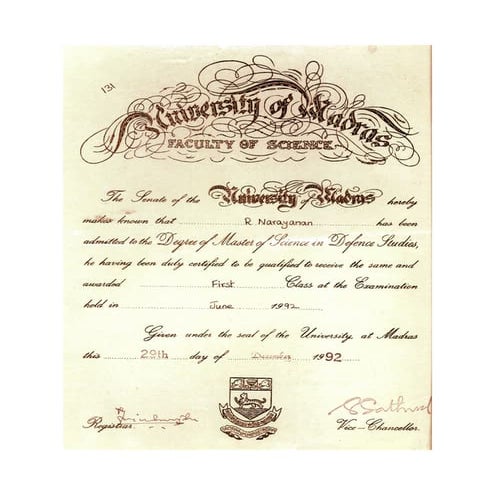 131
University of Madras
FACULTY OF SCIENCE
The Senate of the University of Madras hereby
makes known that R. Narayanan has been
admitted to the Degree of Master of Science in Defence Studies,
he having been duly certified to be qualified to receive the same and
awarded First Class at the Examination
held in June 1992
Given under the seal of the University at Madras
this 29th day of December 1992
Registrar. Vice-Chancellor.